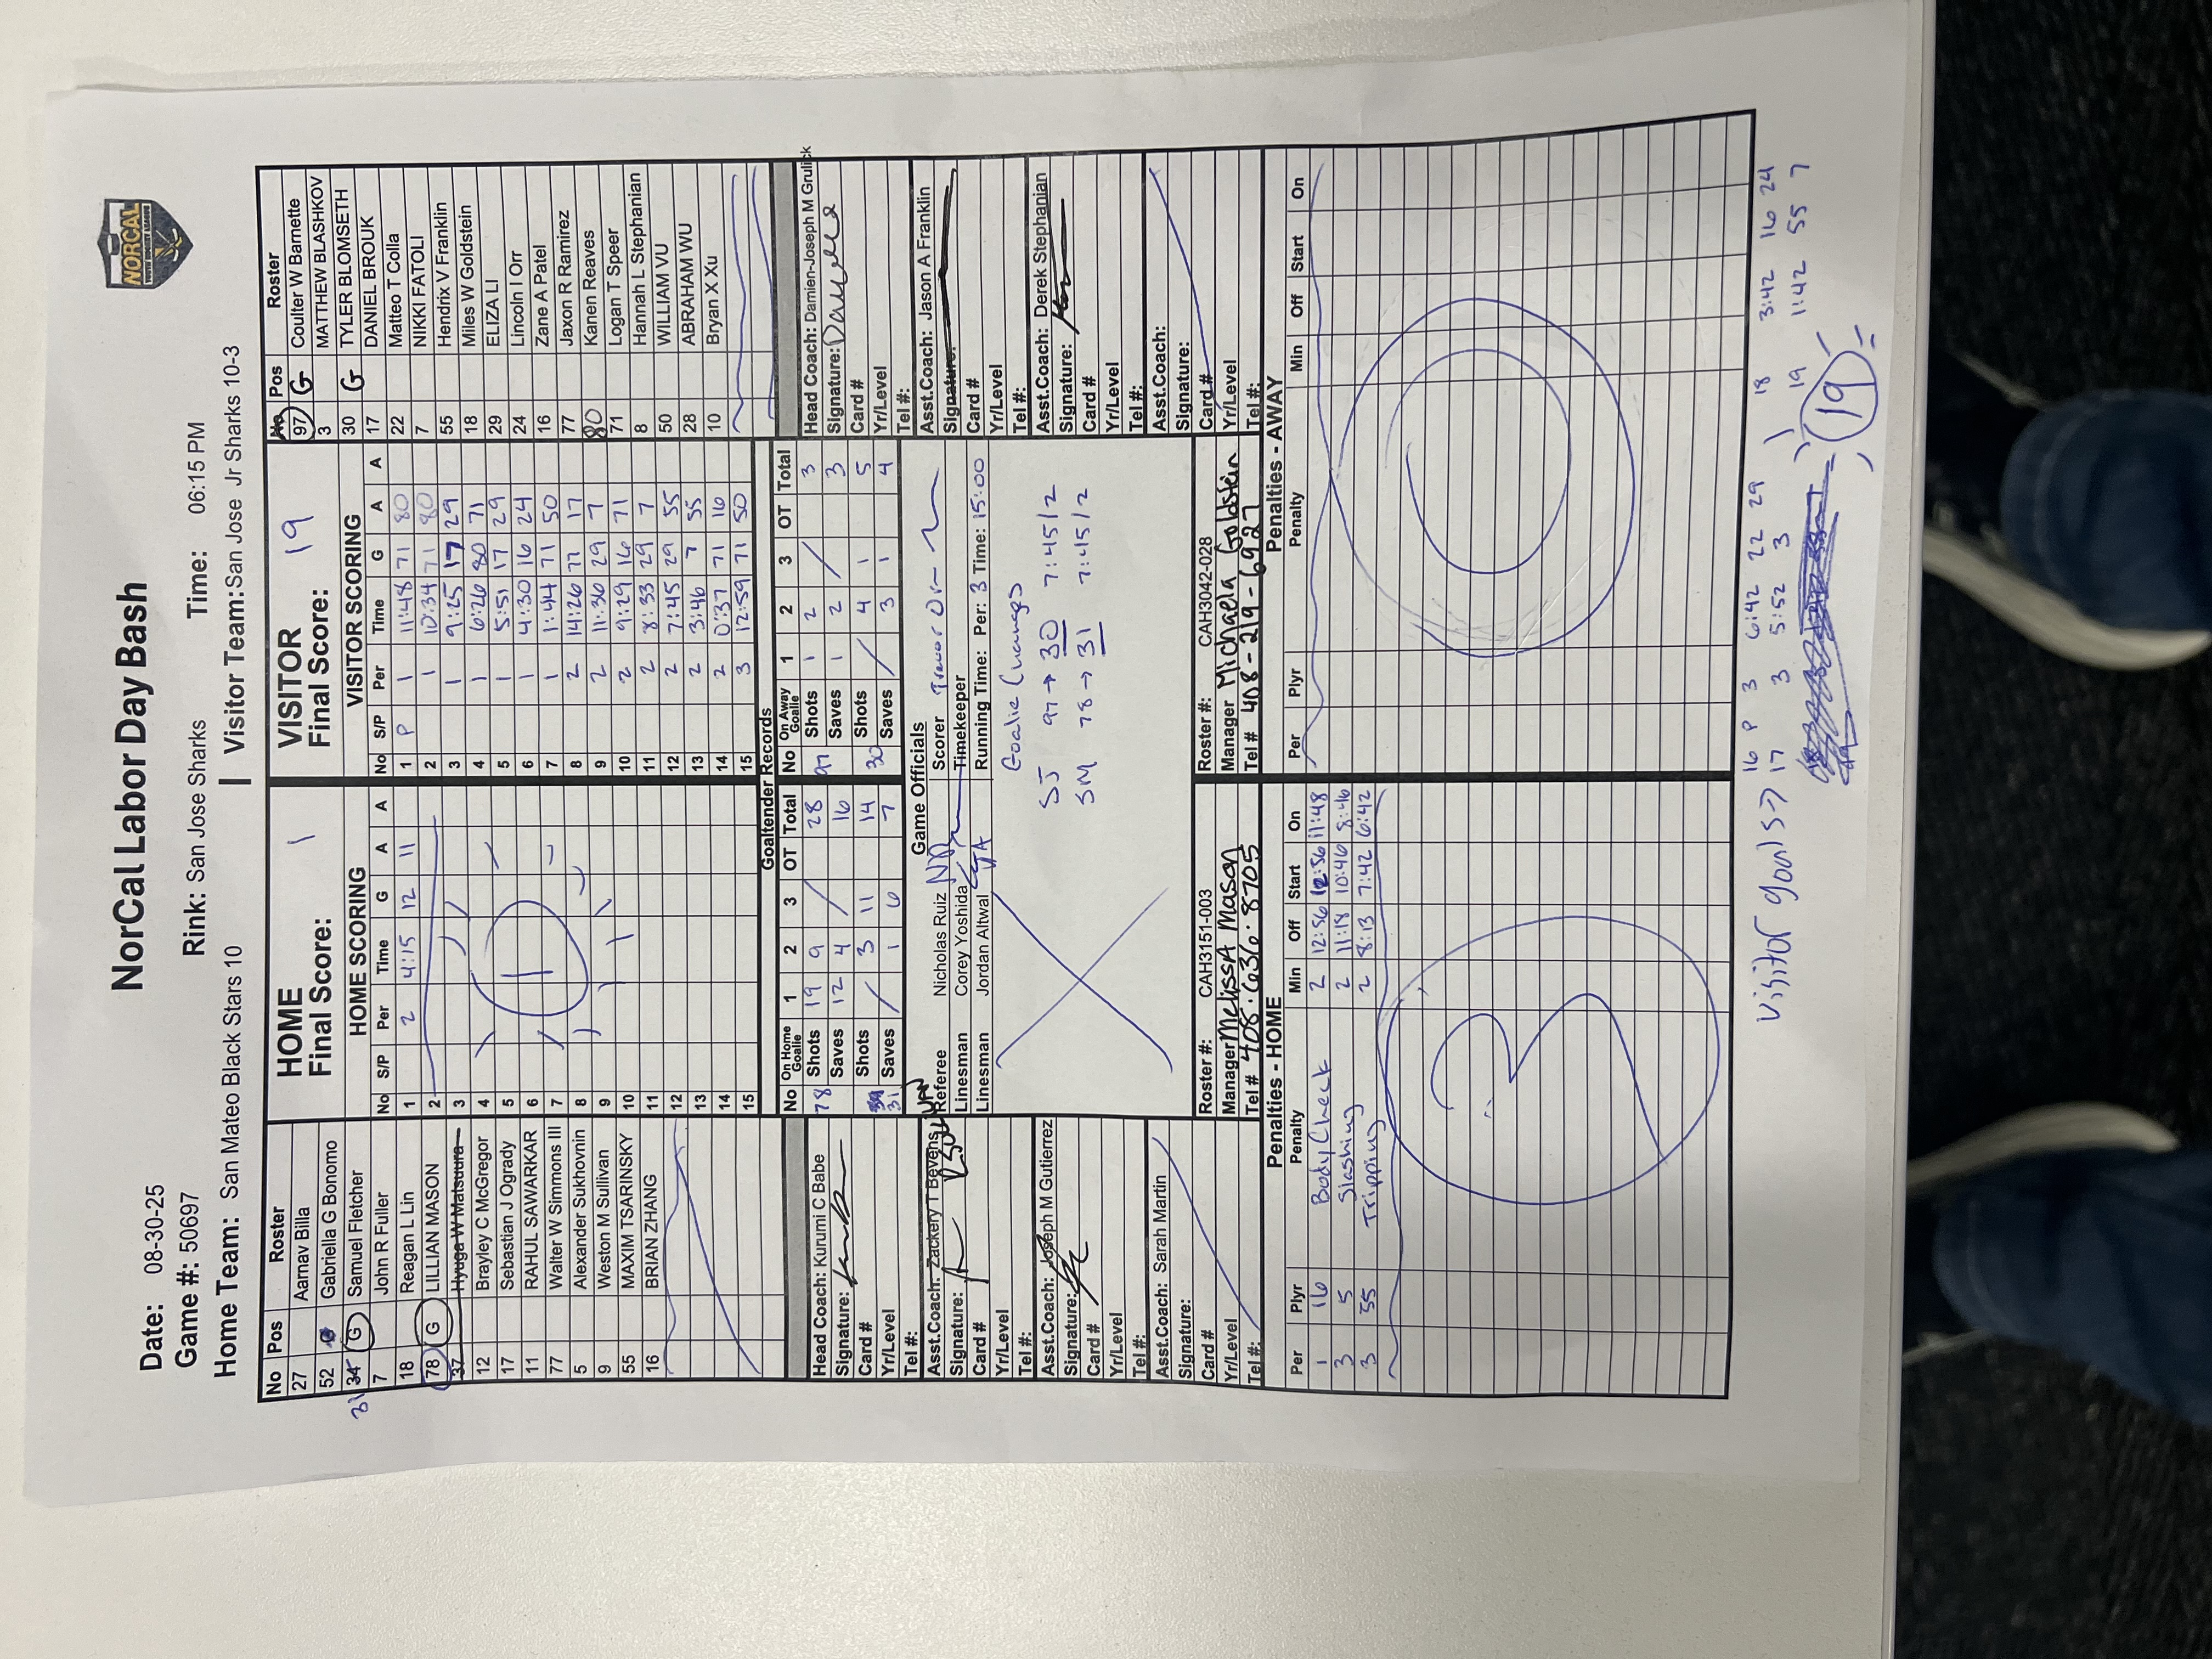 NORCAL
YOUTH HOCKEY LEAGUE
NorCal Labor Day Bash
Date: 08-30-25
Rink: San Jose Sharks Time: 06:15 PM
Game #: 50697
Home Team: San Mateo Black Stars 10 Visitor Team:San Jose Jr Sharks 10-3
No Pos Roster
27 Aarnav Billa
52 Gabriella G Bonomo
31 34 G Samuel Fletcher
7 John R Fuller
18 Reagan L Lin
78 G LILLIAN MASON
37 Hyuga W Matsuura
12 Brayley C McGregor
17 Sebastian J Ogrady
11 RAHUL SAWARKAR
77 Walter W Simmons III
5 Alexander Sukhovnin
9 Weston M Sullivan
55 MAXIM TSARINSKY
16 BRIAN ZHANG
HOME
Final Score: 1
HOME SCORING
No S/P Per Time G A A
1 2 4:15 12 11
2
3
4
5
6
7
8
9
10
11
12
13
14
15
1
VISITOR
Final Score: 19
VISITOR SCORING
No S/P Per Time G A A
1 P 1 11:48 71 80
2 1 10:34 71 80
3 1 9:25 17 29
4 1 6:26 80 71
5 1 5:51 17 29
6 1 4:30 16 24
7 1 1:44 71 50
8 2 14:26 77 17
9 2 11:36 29 7
10 2 9:29 16 71
11 2 8:33 29 7
12 2 7:45 29 55
13 2 3:46 7 55
14 2 0:37 71 16
15 3 12:59 71 50
No Pos Roster
97 G Coulter W Barnette
3 MATTHEW BLASHKOV
30 G TYLER BLOMSETH
17 DANIEL BROUK
22 Matteo T Colla
7 NIKKI FATOLI
55 Hendrix V Franklin
18 Miles W Goldstein
29 ELIZA LI
24 Lincoln I Orr
16 Zane A Patel
77 Jaxon R Ramirez
80 Kanen Reaves
71 Logan T Speer
8 Hannah L Stephanian
50 WILLIAM VU
28 ABRAHAM WU
10 Bryan X Xu
Head Coach: Kurumi C Babe
Signature:
Card #
Yr/Level
Tel #:
Asst.Coach: Zackery T Bevens
Signature:
Card #
Yr/Level
Tel #:
Asst.Coach: Joseph M Gutierrez
Signature:
Card #
Yr/Level
Tel #:
Asst.Coach: Sarah Martin
Signature:
Card #
Yr/Level
Tel #:
Goaltender Records
No On Home Goalie 1 2 3 OT Total
78 Shots 19 9 / 28
Saves 12 4 / 16
31 Shots / 3 11 14
Saves / 1 6 7
No On Away Goalie 1 2 3 OT Total
97 Shots 1 2 / 3
Saves 1 2 / 3
30 Shots / 4 1 5
Saves / 3 1 4
Game Officials
Referee Nicholas Ruiz Scorer Trevor Orr
Linesman Corey Yoshida Timekeeper
Linesman Jordan Altwal Running Time: Per: 3 Time: 15:00
Goalie Changes
SJ 97 → 30 7:45/2
SM 78 → 31 7:45/2
Roster #: CAH3151-003
Manager Melissa Mason
Tel # 408.636.8705
Roster #: CAH3042-028
Manager Michaela Goldstein
Tel # 408-219-6927
Head Coach: Damien-Joseph M Grulick
Signature:
Card #
Yr/Level
Tel #:
Asst.Coach: Jason A Franklin
Signature:
Card #
Yr/Level
Tel #:
Asst.Coach: Derek Stephanian
Signature:
Card #
Yr/Level
Tel #:
Asst.Coach:
Signature:
Card #
Yr/Level
Tel #:
Penalties - HOME
Per Plyr Penalty Min Off Start On
1 16 Body Check 2 12:56 12:56 11:48
3 5 Slashing 2 11:18 10:46 8:46
3 55 Tripping 2 8:13 7:42 6:42
3
Penalties - AWAY
Per Plyr Penalty Min Off Start On
0
Visitor goals → 16 P 3 6:42 22 29 18 3:42 16 24
17 3 5:52 3 19 11:42 55 7
19